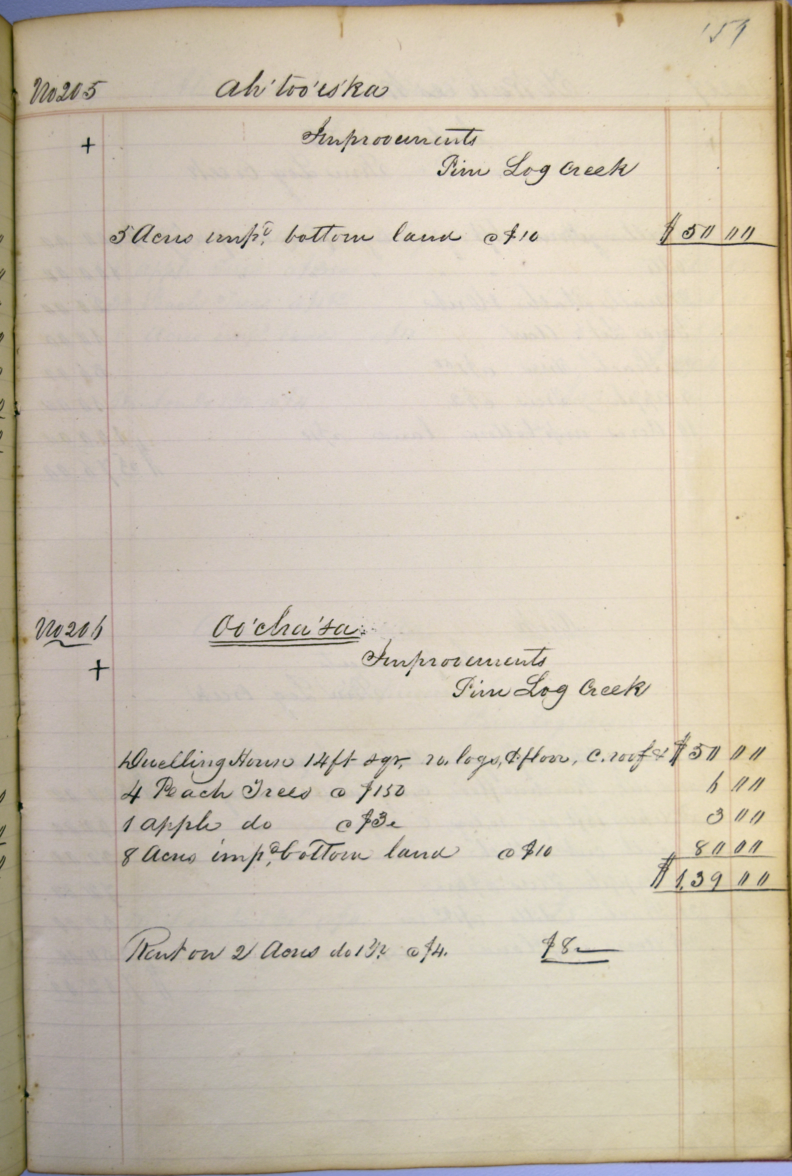 151
No 205 Ah'too'es'ka
+ Improvements
Pine Log Creek
5 Acres imp.d bottom land @ $10 $50 00
No 206 Oo'cha'sa
+ Improvements
Pine Log Creek
Dwelling House 14 ft sqr. ro. logs, & floor, C. roof & $50 00
4 Peach Trees @ $1 50 6 00
1 apple do @ $3 3 00
8 Acres imp.d bottom land @ $10 80 00
$139 00
Rent on 2 Acres do 1 Yr @ $4. $8